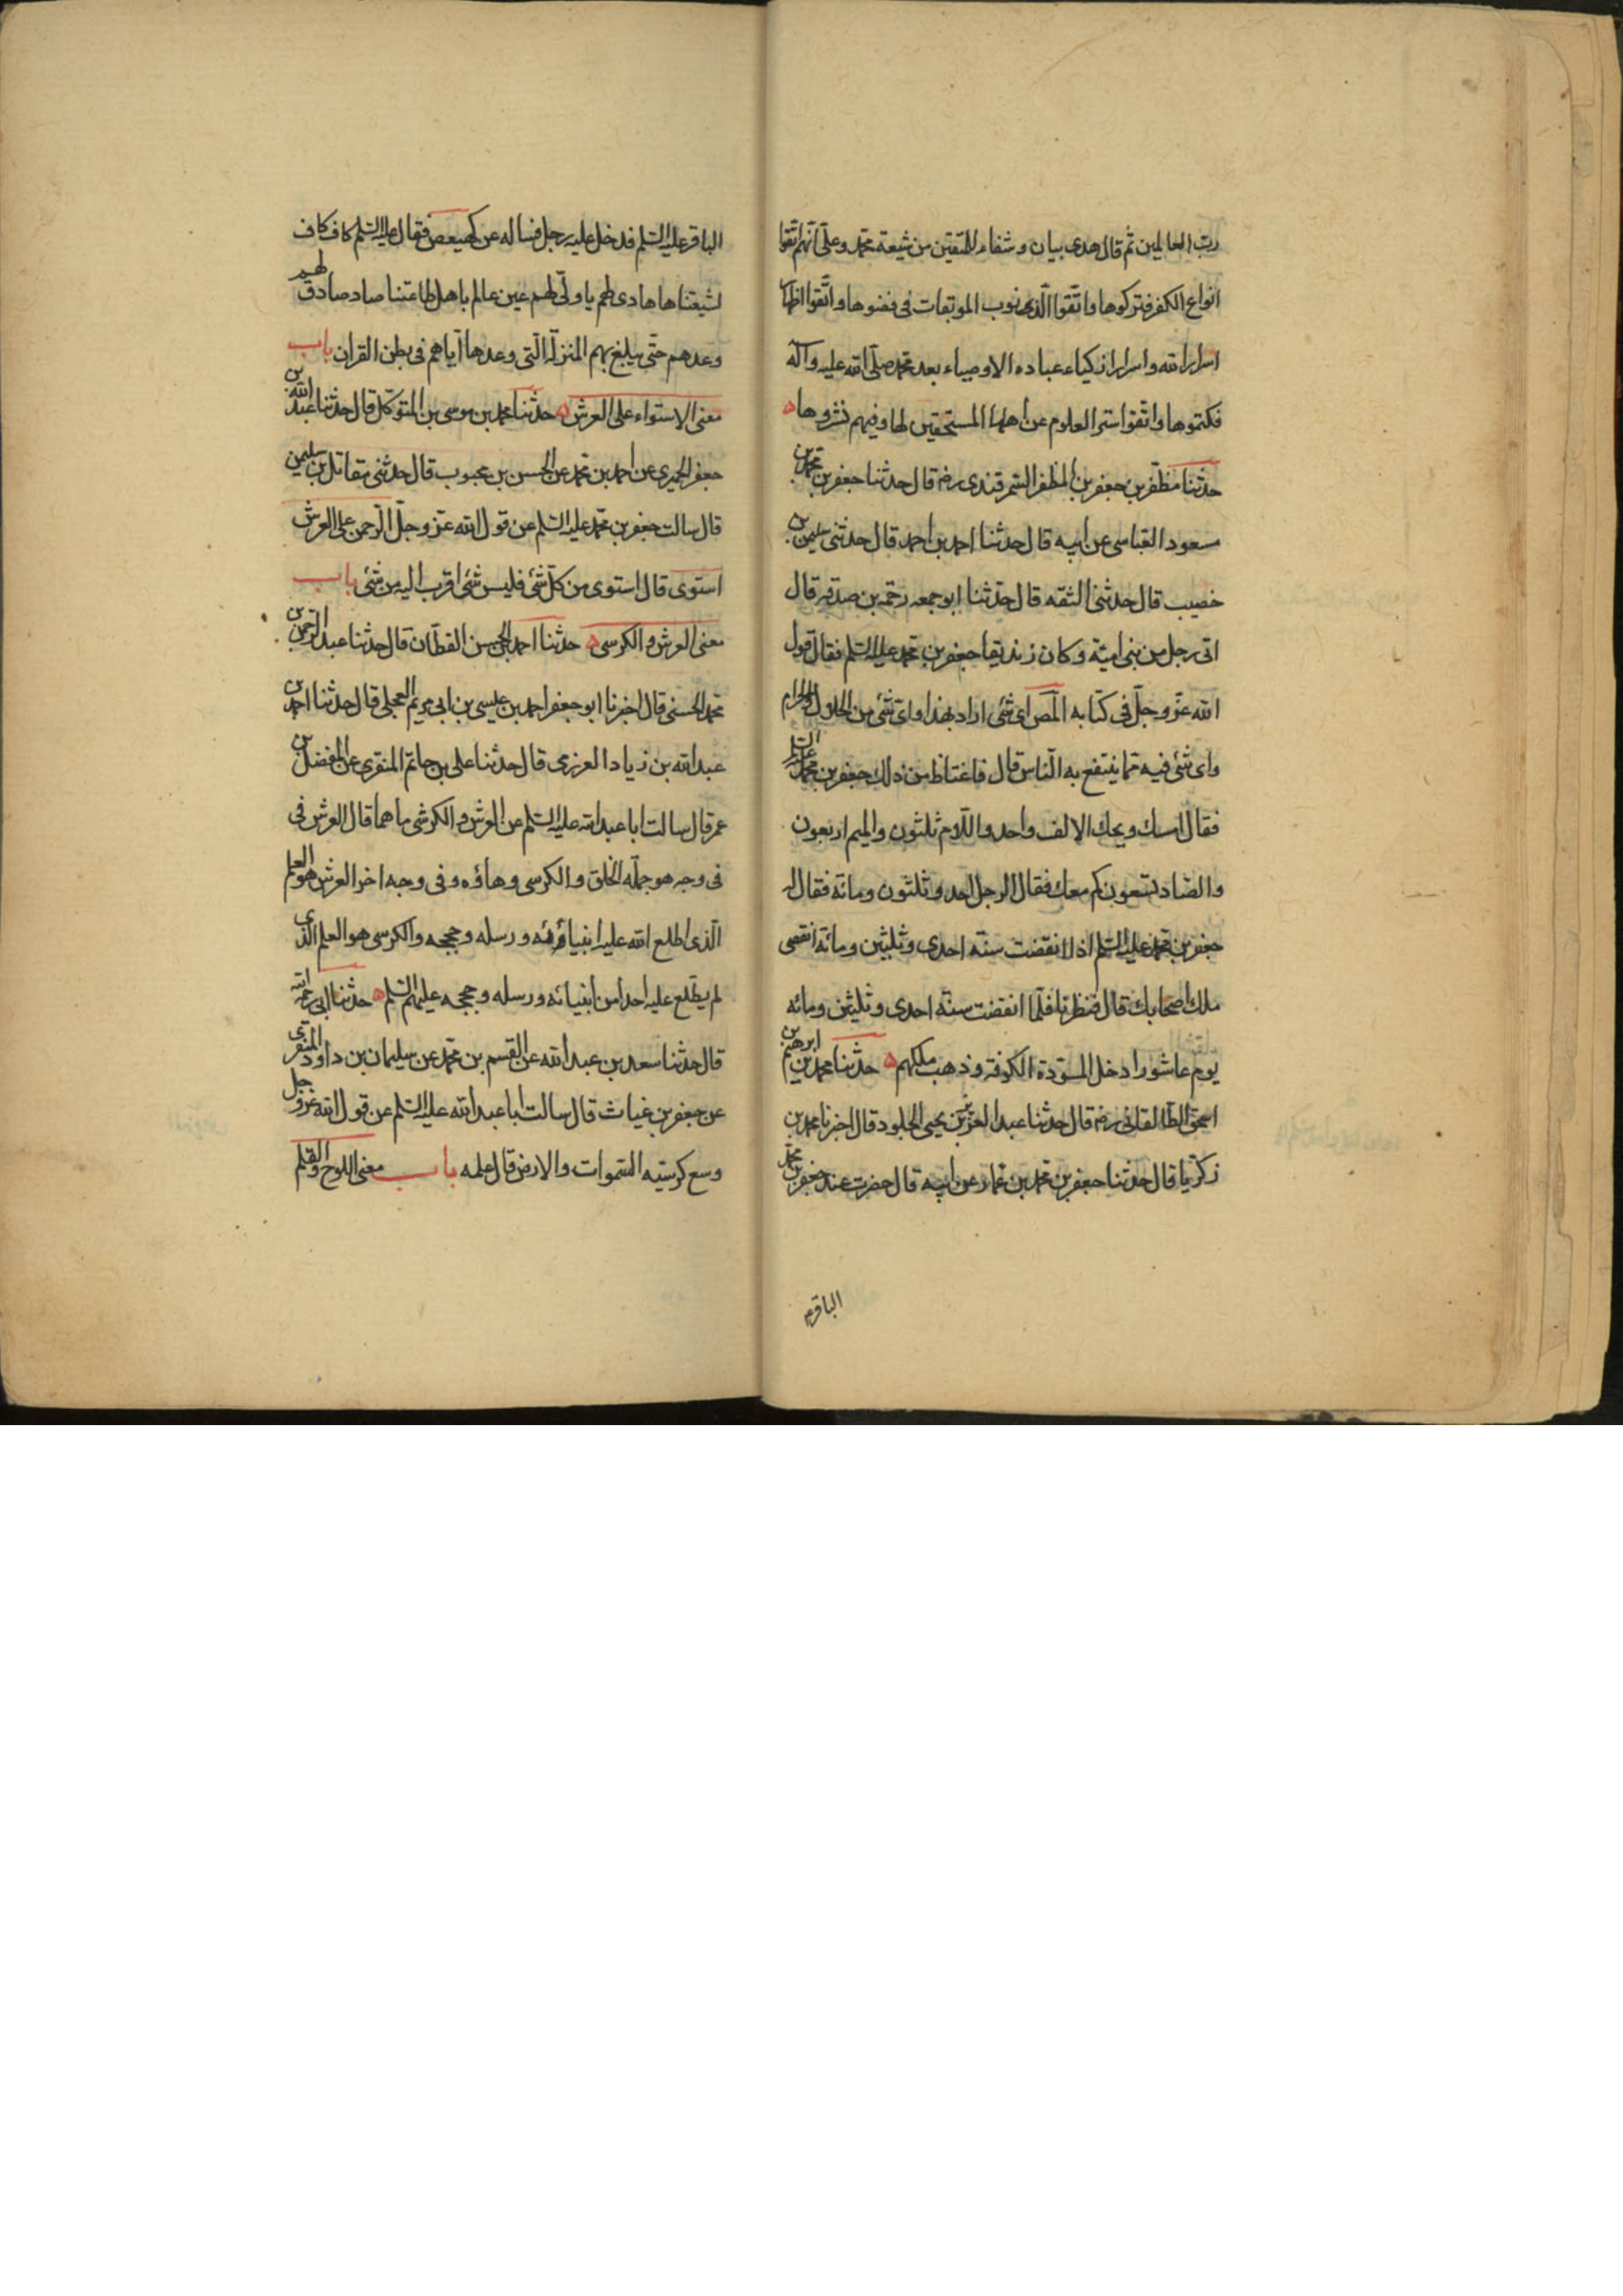 ربّ العالمين ثم قال هدى بيان وشفاء للمتقين من شيعة محمد وعلى انهم اتقوا
انواع الكفر فتركوها واتقوا الذنوب الموبقات فرفضوها واتقوا اظهار
اسرار الله واسرار ازكياء عباده الاوصياء بعد محمد صلى الله عليه وآله
فكتموها واتقوا ستر العلوم عن اهلها المستحقين لها وفيهم نشروها
حدثنا مظفر بن جعفر بن المظفر السمرقندى رضه قال حدثنا جعفر بن محمد بن
مسعود العياسى عن ابيه قال حدثنا احمد بن احمد قال حدثنى سليمن بن
خصيب قال حدثنى الثقه قال حدثنا ابو جمعه رحمه بن صدقه قال
اتى رجل من بنى امية وكان زنديقا جعفر بن محمد عليه السلم فقال قول
الله عز وجل فى كتابه المص اى شئ اراد بهذا واى شئ من الحلال والحرام
واى شئ فيه مما ينتفع به الناس قال فاغتاظ من ذلك جعفر بن محمد عليه السلم
فقال امسك ويحك الالف واحد واللام ثلثون والميم اربعون
والصاد تسعون كم معك فقال الرجل احد وثلثون ومائة فقال له
جعفر بن محمد عليه السلم اذا انقضت سنة احدى وثلثين ومائة انقضى
ملك اصحابك قال فنظرنا فلما انقضت سنة احدى وثلثين ومائه
يوم عاشورا دخل المسودة الكوفة وذهب ملكهم حدثنا محمد بن ابرهيم بن
اسحق الطالقانى رضه قال حدثنا عبد العزيز بن يحيى الجلود قال اخبرنا محمد بن
زكريا قال حدثنا جعفر بن محمد بن عمار عن ابيه قال حضرت عند جعفر بن محمد
الباقرم
الباقر عليه السلم فدخل عليه رجل فساله عن كهيعص فقال عليه السلم كاف كاف
لشيعتنا ها هادى لهم يا ولى لهم عين عالم باهل طاعتنا صاد صادق لهم
وعدهم حتى يبلغ بهم المنزلة التى وعدها اياهم فى بطن القران باب
معنى الاستواء على العرش حدثنا محمد بن موسى بن المتوكل قال حدثنا عبد الله بن
جعفر الحميرى عن احمد بن محمد عن الحسن بن محبوب قال حدثنى مقاتل بن سليمن
قال سالت جعفر بن محمد عليه السلم عن قول الله عز وجل الرحمن على العرش
استوى قال استوى من كل شئ فليس شئ اقرب اليه من شئ باب
معنى العرش والكرسى حدثنا احمد بن الحسن القطان قال حدثنا عبد الرحمن بن
محمد الحسنى قال اخبرنا ابو جعفر احمد بن عيسى بن ابى مريم العجلى قال حدثنا احمد بن
عبد الله بن زياد العرزمى قال حدثنا على بن حاتم المنقرى عن المفضل بن
عمر قال سالت ابا عبد الله عليه السلم عن العرش والكرسى ما هما قال العرش فى
فى وجه هو جملة الخلق والكرسى وهاؤه وفى وجه اخر العرش هو العلم
الذى اطلع الله عليه انبياؤه ورسله وحججه والكرسى هو العلم الذى
لم يطلع عليه احدا من انبيائه ورسله وحججه عليهم السلم حدثنا ابى رحمه الله
قال حدثنا سعد بن عبد الله عن القسم بن محمد عن سليمان بن داود المنقرى
عن جعفر بن غياث قال سالت ابا عبد الله عليه السلم عن قول الله عز وجل
وسع كرسيه السموات والارض قال علمه باب معنى اللوح والقلم